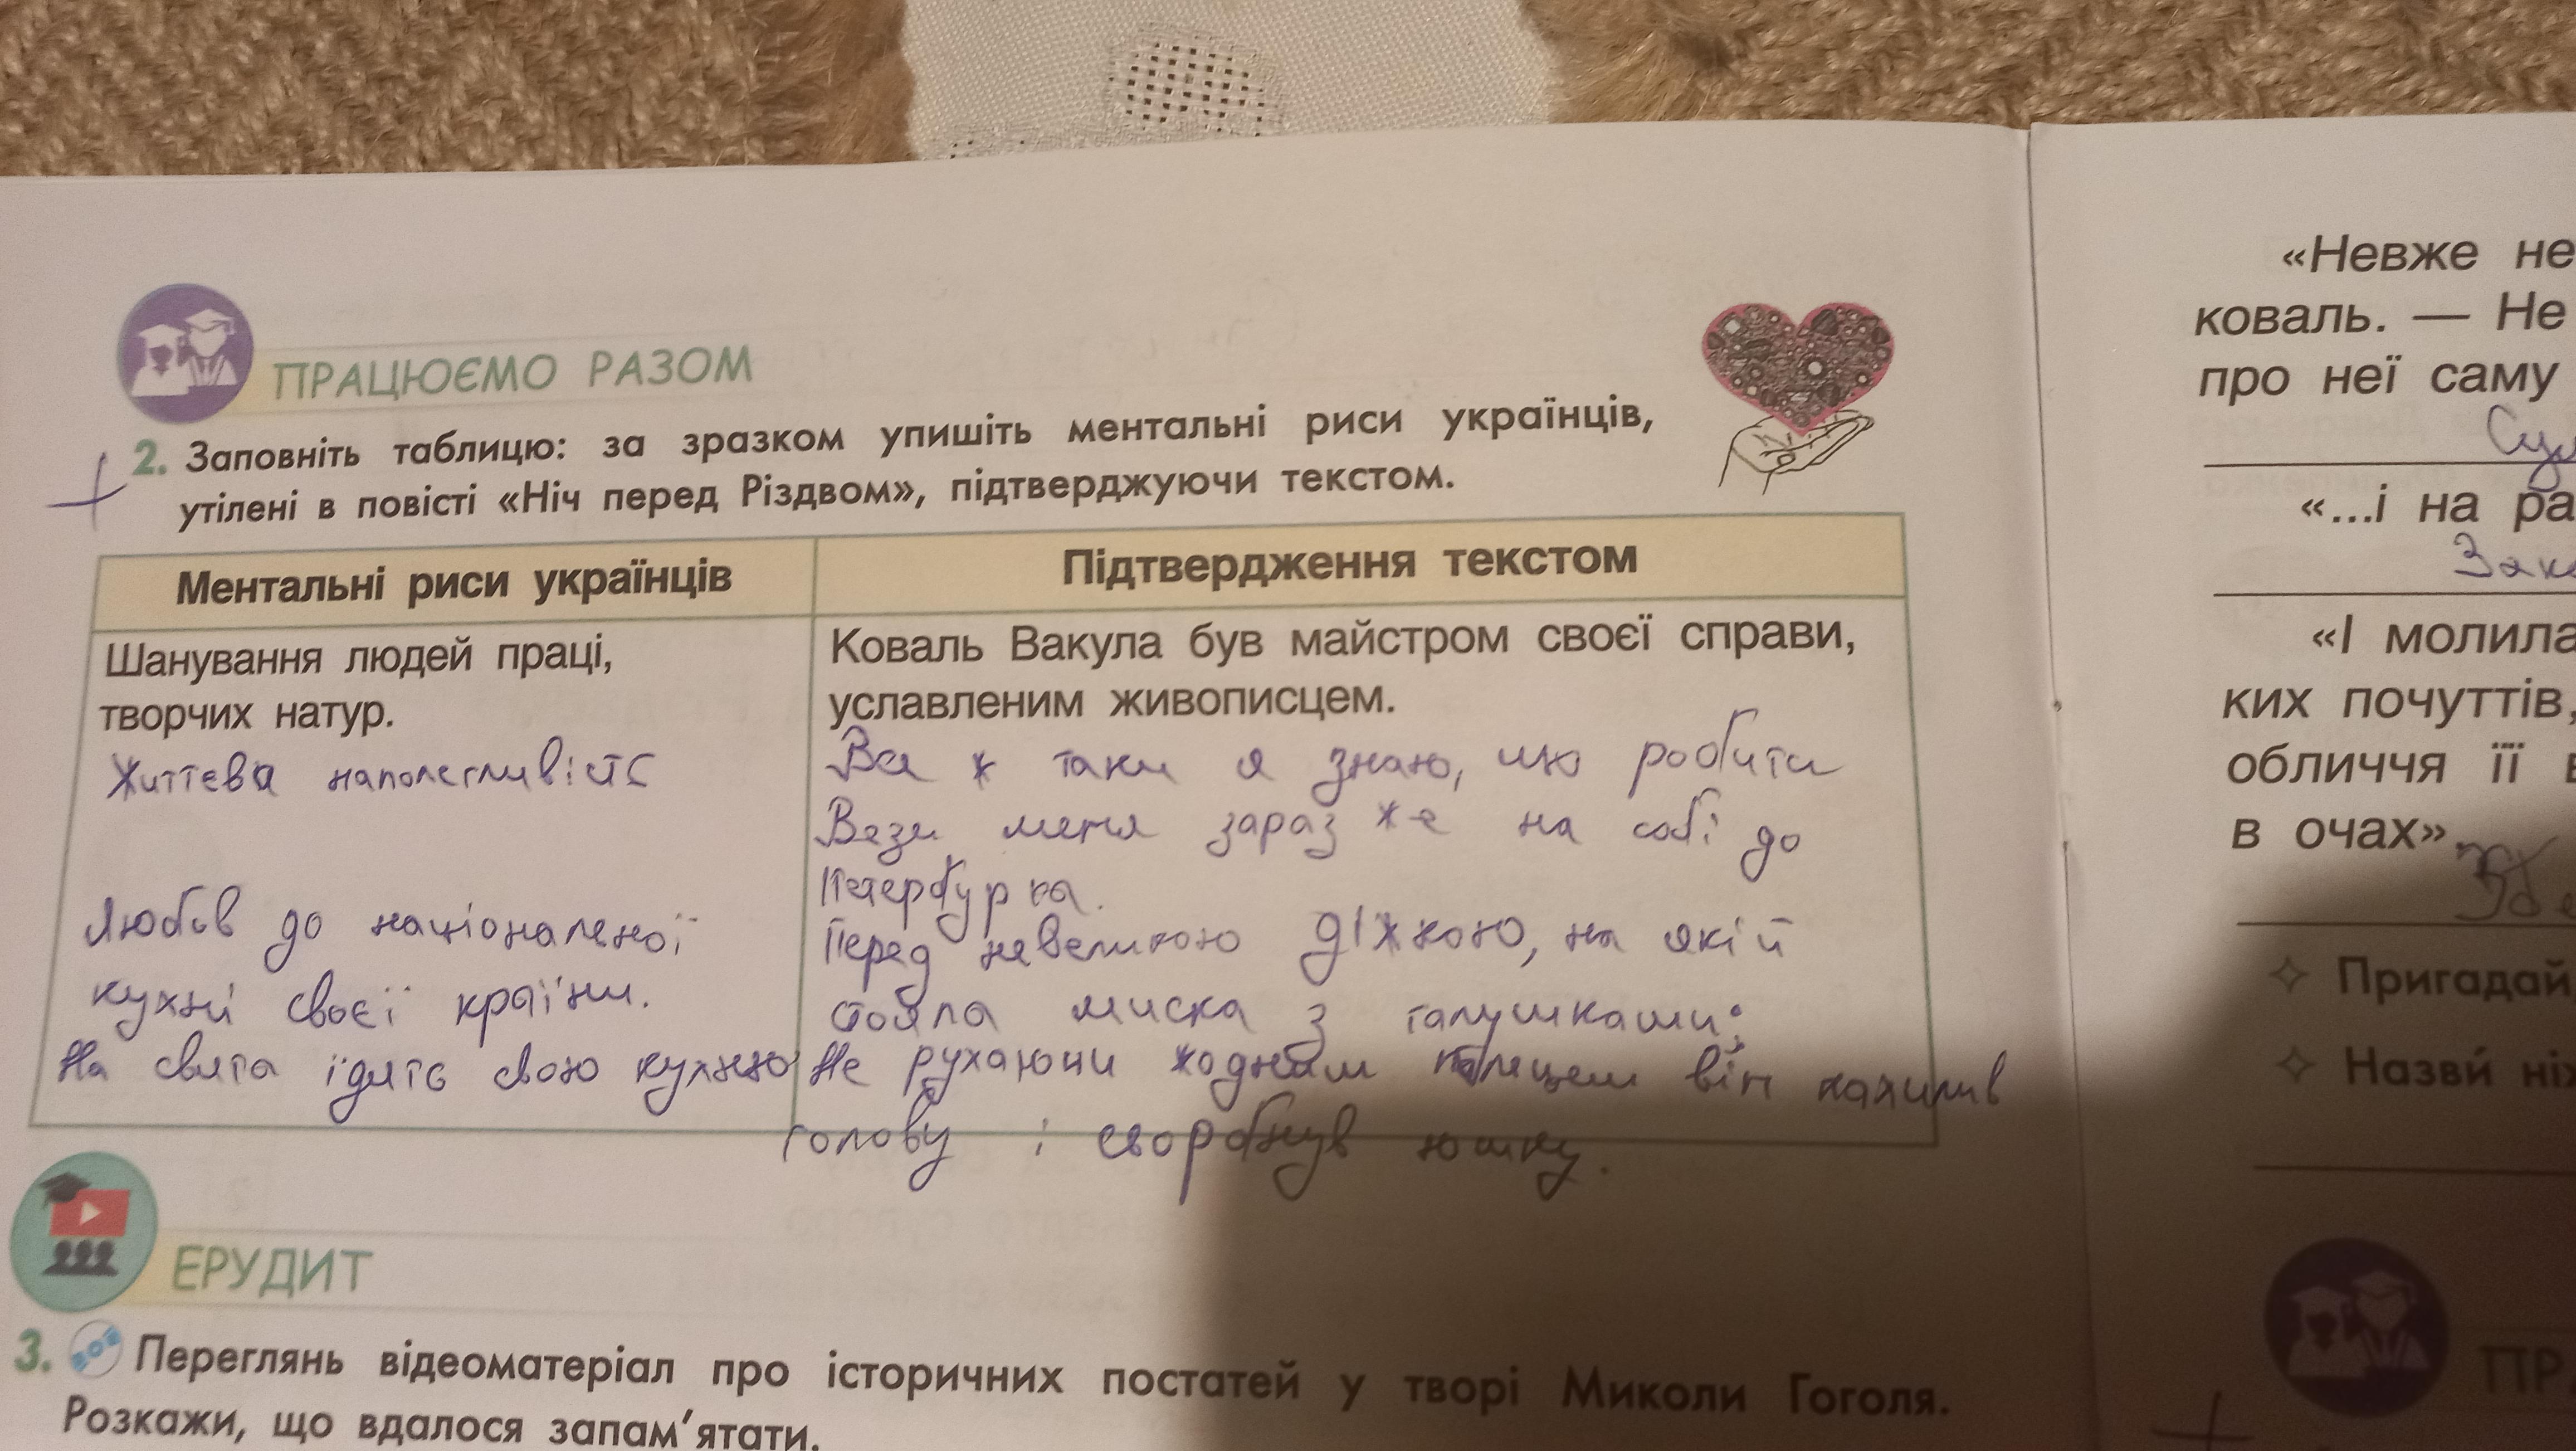 ПРАЦЮЄМО РАЗОМ
2. Заповніть таблицю: за зразком упишіть ментальні риси українців,
утілені в повісті «Ніч перед Різдвом», підтверджуючи текстом.
Ментальні риси українців
Шанування людей праці,
творчих натур.
Життєва наполегливість
Любов до національної
кухні своєї країни.
На свята їдять свою кухню
Підтвердження текстом
Коваль Вакула був майстром своєї справи,
уславленим живописцем.
Все ж таки я знаю, що робити
Вези мене зараз же на собі до
Петербурка.
Перед невеликою діжкою, на якій
стояла миска з галушками;
Не рухаючи жодним пальцем він нахилив
голову і сворбнув юшку.
ЕРУДИТ
3. Переглянь відеоматеріал про історичних постатей у творі Миколи Гоголя.
Розкажи, що вдалося запам'ятати.
«Невже не
коваль. — Не
про неї саму
«...і на ра
«І молила
ких почуттів,
обличчя її в
в очах».
Пригадай
Назви́ ніх
ПР